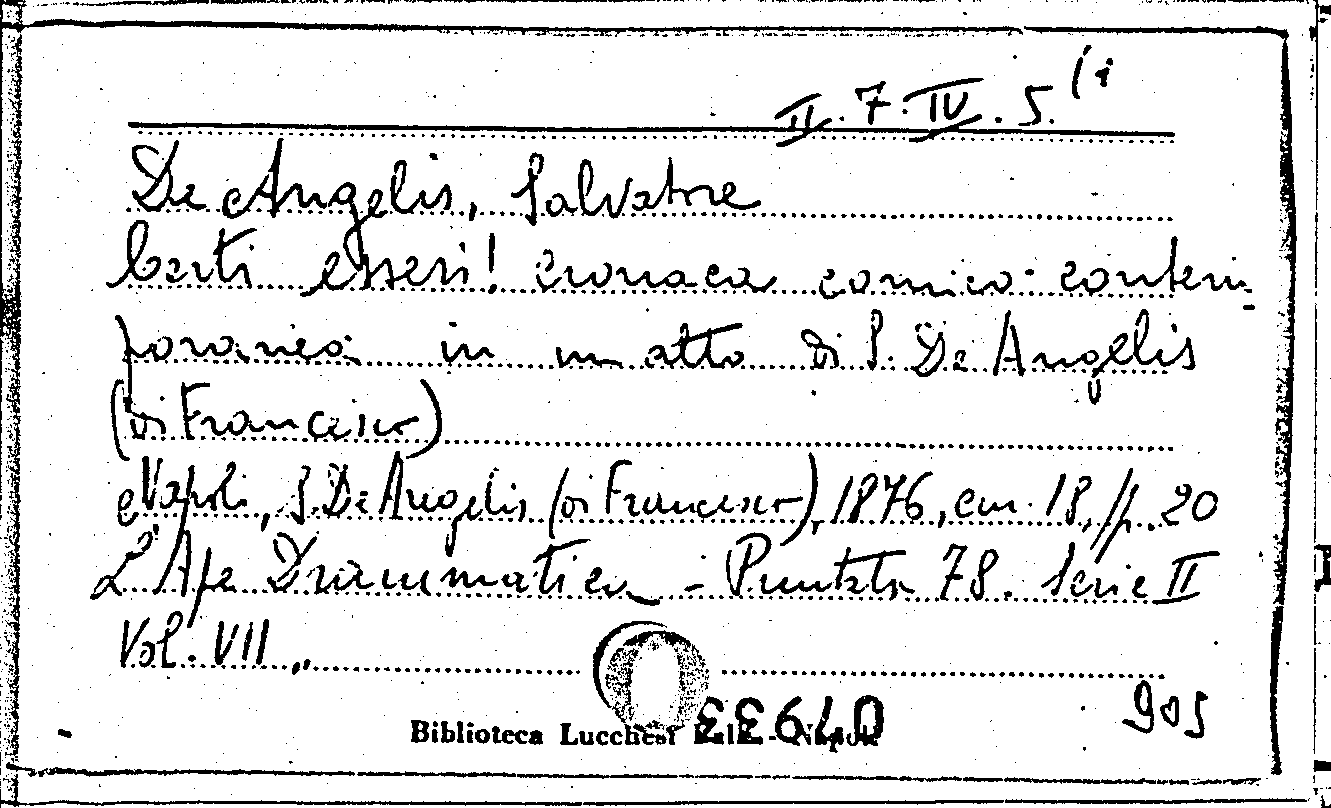 II. 7. IV. 5. (i
De Angelis, Salvatore
Certi esseri! cronaca comico-contem-
poranea in un atto di S. De Angelis
(di Francesco)
Napoli, S. De Angelis (di Francesco), 1876, cm. 18, p. 20
L'Ape Drammatica - Puntata 78. Serie II
Vol. VII
Biblioteca Lucchesi Palli - Napoli
905